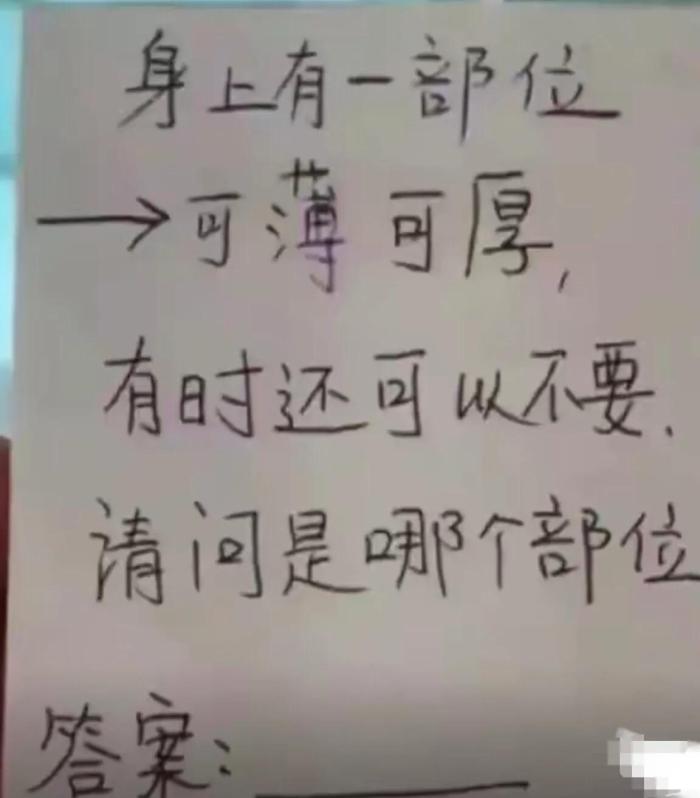 身上有一部位
→可薄可厚,
有时还可以不要.
请问是哪个部位
答案:______